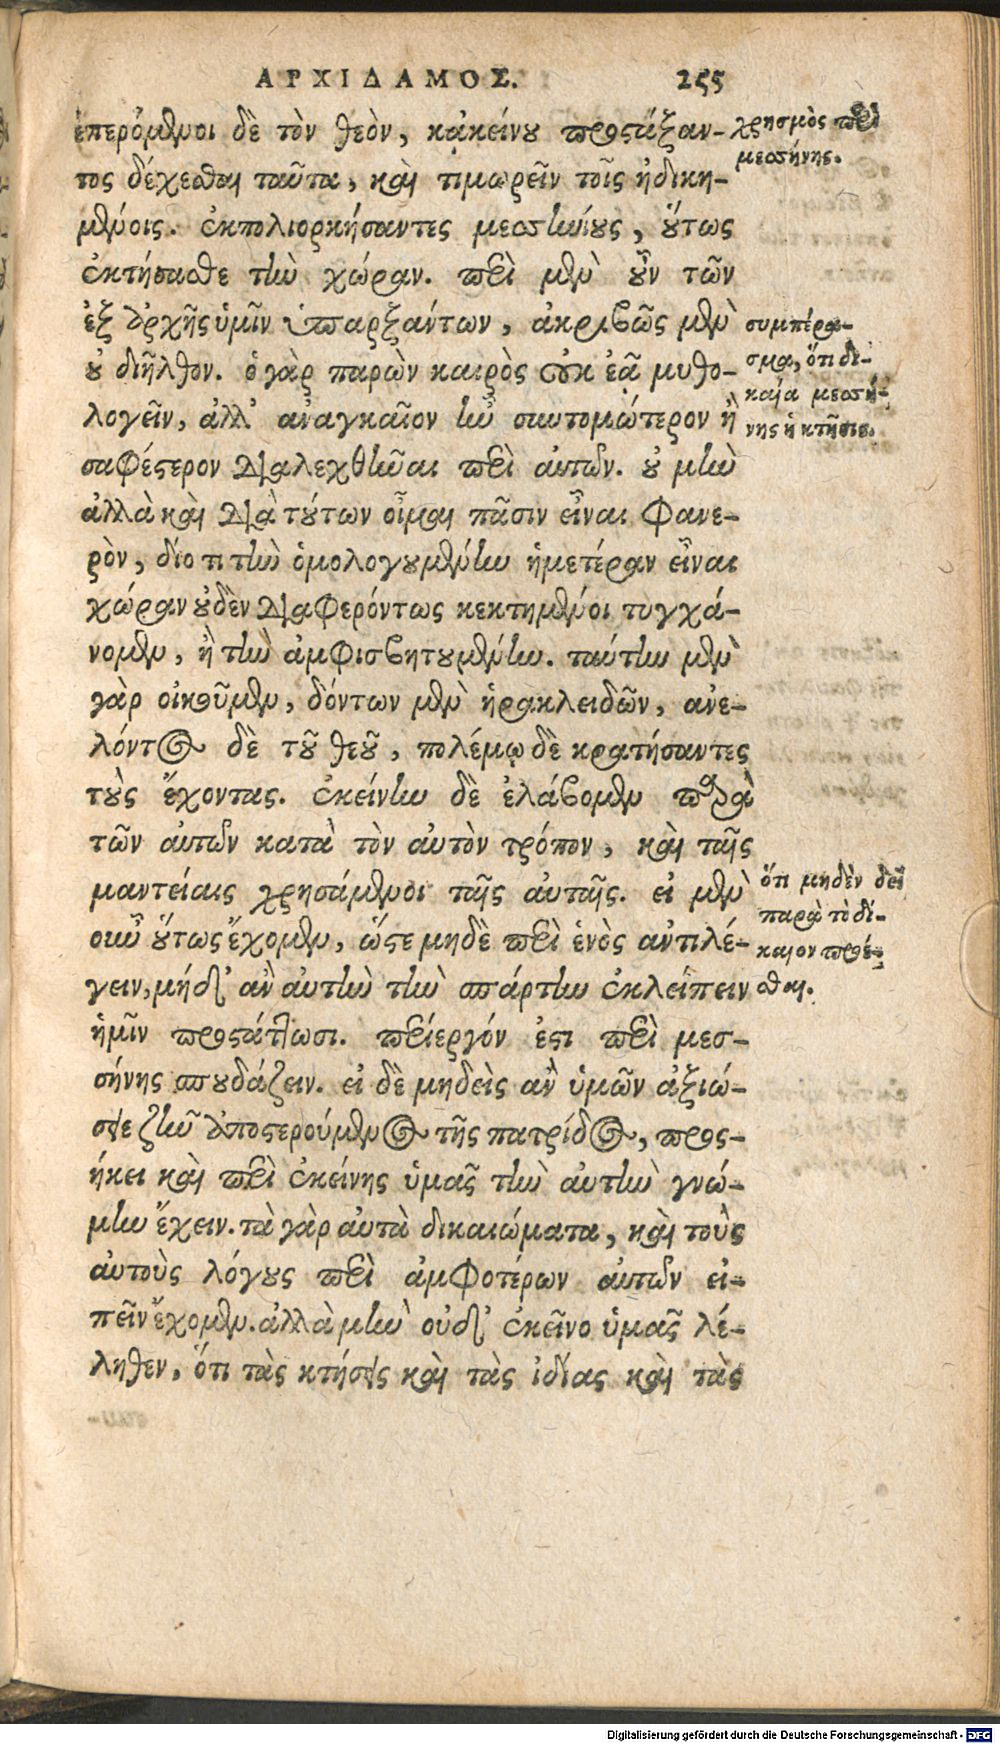 ΑΡΧΙΔΑΜΟΣ. 255
ἐπερόμενοι δὲ τὸν θεὸν, κἀκείνου προςτάξαν-
τος δέχεσθαι ταῦτα, καὶ τιμωρεῖν τοῖς ἠδικη-
μένοις. ἐκπολιορκήσαντες μεσσηνίους, οὕτως
ἐκτήσασθε τὴν χώραν. περὶ μὲν οὖν τῶν
ἐξ ἀρχῆς ὑμῖν ὑπαρξάντων, ἀκριβῶς μὲν
οὐ διῆλθον. ὁ γὰρ παρὼν καιρὸς οὐκ ἐᾷ μυθο-
λογεῖν, ἀλλ' ἀναγκαῖον ἦν συντομώτερον ἢ
σαφέστερον διαλεχθῆναι περὶ αὐτῶν. οὐ μὴν
ἀλλὰ καὶ διὰ τούτων οἶμαι πᾶσιν εἶναι φανε-
ρὸν, διότι τὴν ὁμολογουμένην ἡμετέραν εἶναι
χώραν οὐδὲν διαφερόντως κεκτημένοι τυγχά-
νομεν, ἢ τὴν ἀμφισβητουμένην. ταύτην μὲν
γὰρ οἰκοῦμεν, δόντων μὲν ἡρακλειδῶν, ἀνε-
λόντος δὲ τοῦ θεοῦ, πολέμῳ δὲ κρατήσαντες
τοὺς ἔχοντας. ἐκείνην δὲ ἐλάβομεν παρὰ
τῶν αὐτῶν κατὰ τὸν αὐτὸν τρόπον, καὶ ταῖς
μαντείαις χρησάμενοι ταῖς αὐταῖς. εἰ μὲν
οὖν οὕτως ἔχομεν, ὥστε μηδὲ περὶ ἑνὸς ἀντιλέ-
γειν, μήδ' ἂν αὐτὴν τὴν σπάρτην ἐκλείπειν
ἡμῖν προςτάττωσι. περίεργόν ἐστι περὶ μεσ-
σήνης σπουδάζειν. εἰ δὲ μηδεὶς ἂν ὑμῶν ἀξιώ-
σειε ζῆν ἀποστερούμενος τῆς πατρίδος, προς-
ήκει καὶ περὶ ἐκείνης ὑμᾶς τὴν αὐτὴν γνώ-
μην ἔχειν. τὰ γὰρ αὐτὰ δικαιώματα, καὶ τοὺς
αὐτοὺς λόγους περὶ ἀμφοτέρων αὐτῶν εἰ-
πεῖν ἔχομεν. ἀλλὰ μὴν οὐδ' ἐκεῖνο ὑμᾶς λέ-
ληθεν, ὅτι τὰς κτήσεις καὶ τὰς ἰδίας καὶ τὰς
χρησμὸς περὶ
μεσσήνης.
συμπέρα-
σμα, ὅτι δι-
καία μεσσή-
νης ἡ κτῆσις.
ὅτι μηδὲν δεῖ
παρὰ τὸ δί-
καιον προέ-
σθαι.
Digitalisierung gefördert durch die Deutsche Forschungsgemeinschaft - DFG